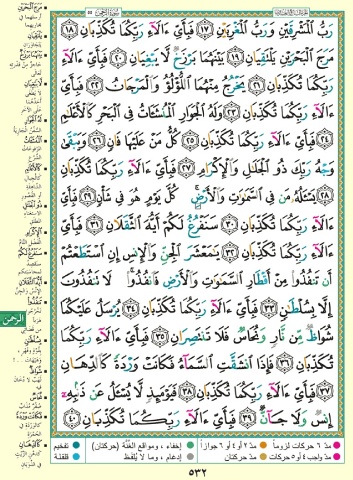 رَبُّ ٱلْمَشْرِقَيْنِ وَرَبُّ ٱلْمَغْرِبَيْنِ ﴿١٧﴾ فَبِأَىِّ ءَالَآءِ رَبِّكُمَا تُكَذِّبَانِ ﴿١٨﴾
مَرَجَ ٱلْبَحْرَيْنِ يَلْتَقِيَانِ ﴿١٩﴾ بَيْنَهُمَا بَرْزَخٌ لَّا يَبْغِيَانِ ﴿٢٠﴾ فَبِأَىِّ ءَالَآءِ
رَبِّكُمَا تُكَذِّبَانِ ﴿٢١﴾ يَخْرُجُ مِنْهُمَا ٱللُّؤْلُؤُ وَٱلْمَرْجَانُ ﴿٢٢﴾ فَبِأَىِّ
ءَالَآءِ رَبِّكُمَا تُكَذِّبَانِ ﴿٢٣﴾ وَلَهُ ٱلْجَوَارِ ٱلْمُنشَـَٔاتُ فِى ٱلْبَحْرِ كَٱلْأَعْلَٰمِ
﴿٢٤﴾ فَبِأَىِّ ءَالَآءِ رَبِّكُمَا تُكَذِّبَانِ ﴿٢٥﴾ كُلُّ مَنْ عَلَيْهَا فَانٍ ﴿٢٦﴾ وَيَبْقَىٰ
وَجْهُ رَبِّكَ ذُو ٱلْجَلَٰلِ وَٱلْإِكْرَامِ ﴿٢٧﴾ فَبِأَىِّ ءَالَآءِ رَبِّكُمَا تُكَذِّبَانِ
﴿٢٨﴾ يَسْـَٔلُهُۥ مَن فِى ٱلسَّمَٰوَٰتِ وَٱلْأَرْضِ ۚ كُلَّ يَوْمٍ هُوَ فِى شَأْنٍ ﴿٢٩﴾ فَبِأَىِّ
ءَالَآءِ رَبِّكُمَا تُكَذِّبَانِ ﴿٣٠﴾ سَنَفْرُغُ لَكُمْ أَيُّهَ ٱلثَّقَلَانِ ﴿٣١﴾ فَبِأَىِّ
ءَالَآءِ رَبِّكُمَا تُكَذِّبَانِ ﴿٣٢﴾ يَٰمَعْشَرَ ٱلْجِنِّ وَٱلْإِنسِ إِنِ ٱسْتَطَعْتُمْ
أَن تَنفُذُوا۟ مِنْ أَقْطَارِ ٱلسَّمَٰوَٰتِ وَٱلْأَرْضِ فَٱنفُذُوا۟ ۚ لَا تَنفُذُونَ
إِلَّا بِسُلْطَٰنٍ ﴿٣٣﴾ فَبِأَىِّ ءَالَآءِ رَبِّكُمَا تُكَذِّبَانِ ﴿٣٤﴾ يُرْسَلُ عَلَيْكُمَا
شُوَاظٌ مِّن نَّارٍ وَنُحَاسٌ فَلَا تَنتَصِرَانِ ﴿٣٥﴾ فَبِأَىِّ ءَالَآءِ رَبِّكُمَا
تُكَذِّبَانِ ﴿٣٦﴾ فَإِذَا ٱنشَقَّتِ ٱلسَّمَآءُ فَكَانَتْ وَرْدَةً كَٱلدِّهَانِ
﴿٣٧﴾ فَبِأَىِّ ءَالَآءِ رَبِّكُمَا تُكَذِّبَانِ ﴿٣٨﴾ فَيَوْمَئِذٍ لَّا يُسْـَٔلُ عَن ذَنۢبِهِۦٓ
إِنسٌ وَلَا جَآنٌّ ﴿٣٩﴾ فَبِأَىِّ ءَالَآءِ رَبِّكُمَا تُكَذِّبَانِ ﴿٤٠﴾
الرحمن
مدّ ٦ حركات لزوماً مدّ ٢ أو ٤ أو ٦ جوازاً إخفاء، ومواقع الغنّة (حركتان) تفخيم
مدّ واجب ٤ أو ٥ حركات مدّ حركتان إدغام، وما لا يُلفظ قلقلة
٥٣٢